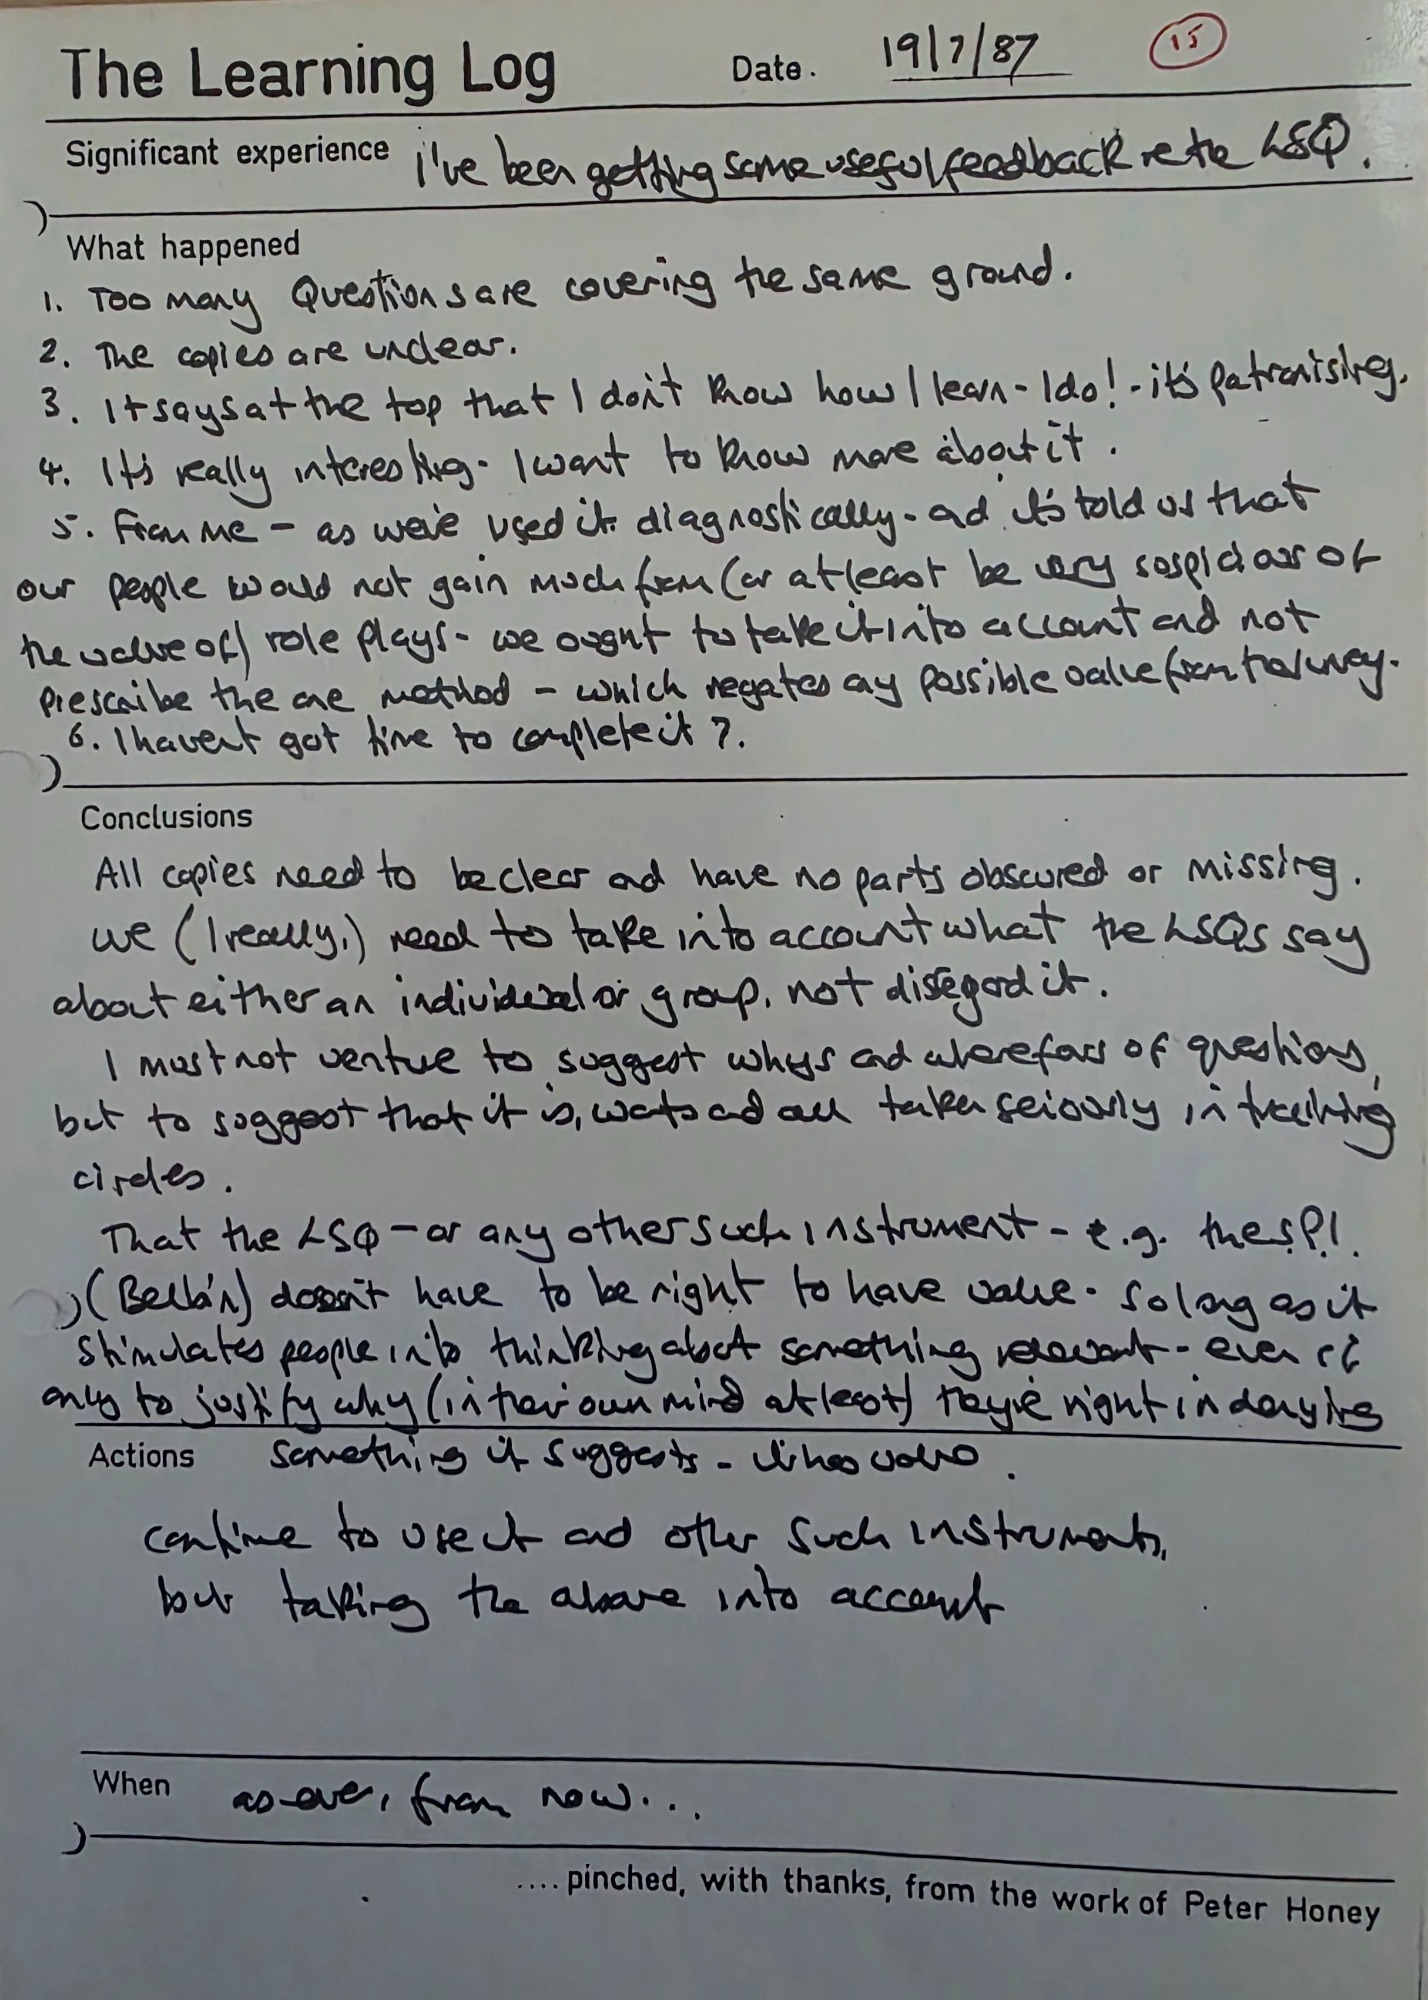 The Learning Log Date. 19/7/87 15
Significant experience i've been getting some useful feedback re the LSQ.
What happened
1. Too many Questions are covering the same ground.
2. The copies are unclear.
3. It says at the top that I don't know how I learn - I do! - it's patronising.
4. It's really interesting - I want to know more about it.
5. From me - as we've used it diagnostically - and it's told us that
our people would not gain much from (or at least be very suspicious of
the value of) role plays - we ought to take it into account and not
prescribe the one method - which negates any possible value from that way.
6. I haven't got time to complete it?.
Conclusions
All copies need to be clear and have no parts obscured or missing.
we (I really,) need to take into account what the LSQs say
about either an individual or group, not disregard it.
I must not venture to suggest whys and wherefores of questions,
but to suggest that it is, warts and all taken seriously in training
circles.
That the LSQ - or any other such instrument - e.g. the S.P.I.
(Belbin) doesn't have to be right to have value. So long as it
stimulates people into thinking about something relevant - even if
only to justify why (in their own mind at least) they're right in denying
Actions something it suggests - it has value.
continue to use it and other such instruments,
but taking the above into account
When as ever, from now...
.... pinched, with thanks, from the work of Peter Honey